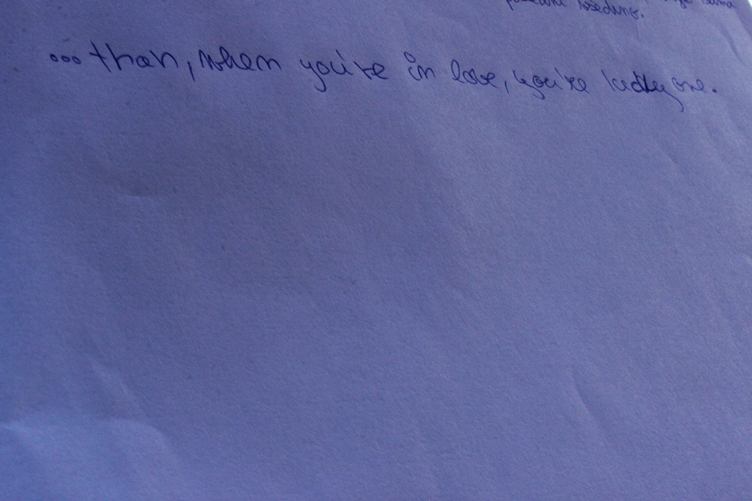 ... than, when you're in love, you're lucky one.